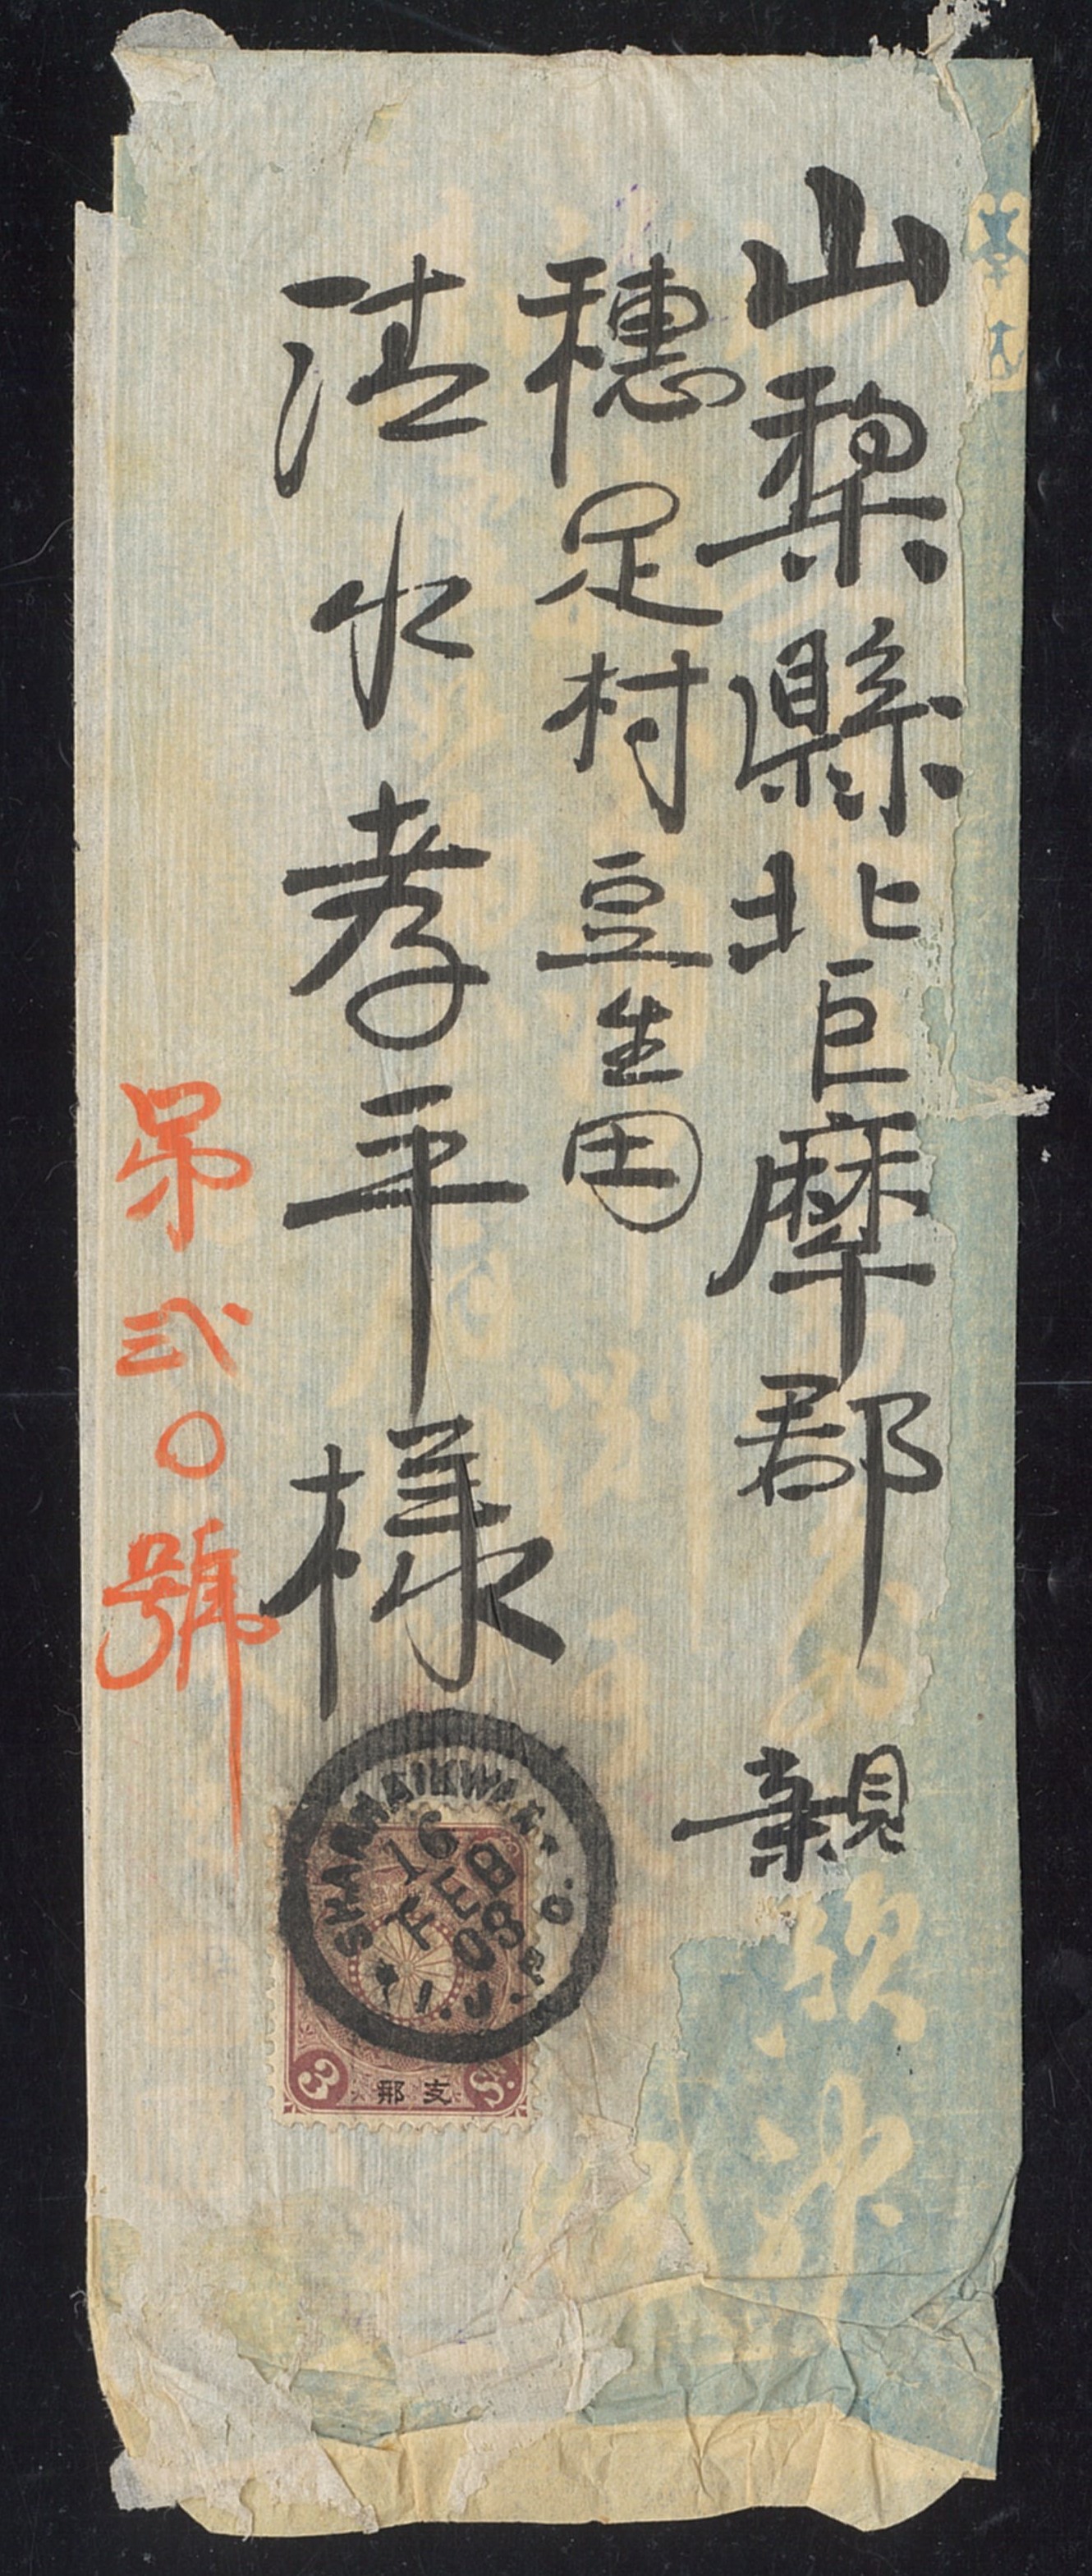 山梨縣北巨摩郡
穗足村豆生田
清水孝平様
親
第弐〇號
SHANHAIKWAN
16
FEB
08
I.J.P.O.
3 S.
支那